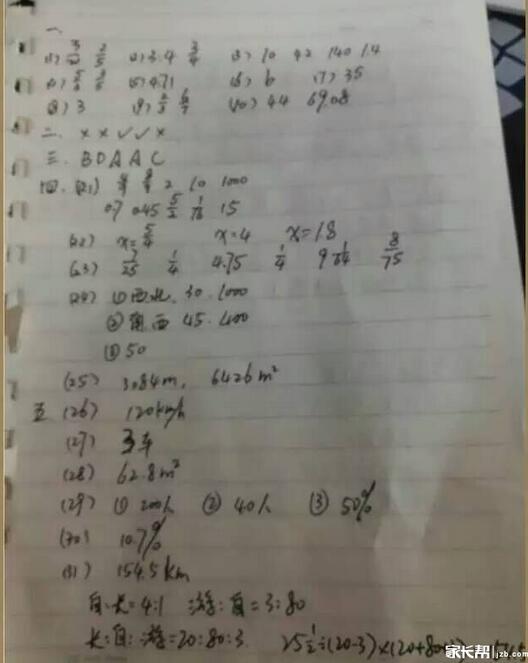 一.
(1) 3/20 2/5 (2) 3:4 3/4 (3) 10 42 140 1.4
(5) 4.71 (6) 6 (7) 35
(8) 3 (10) 44 69.08
二. × × ✓ ✓ ×
三. B D A A C
四. (21) 2 10 1000
0.7 0.45 5/2 15
(22) x=5/4 x=4 x=18
(23) 7/25 1/4 4.75 1/4 8/75
(24) ① 西北. 30. 1000
② 西 45. 400
③ 50
(25) 30.84m, 6426m²
五 (26) 120km/h
(27) 车
(28) 62.8m²
(29) ① 200人 ② 40人 ③ 50%
(30) 10.7%
(31) 154.5km
自:长=4:1 游:自=3:80
长:自:游=20:80:3
家长帮 jzb.com